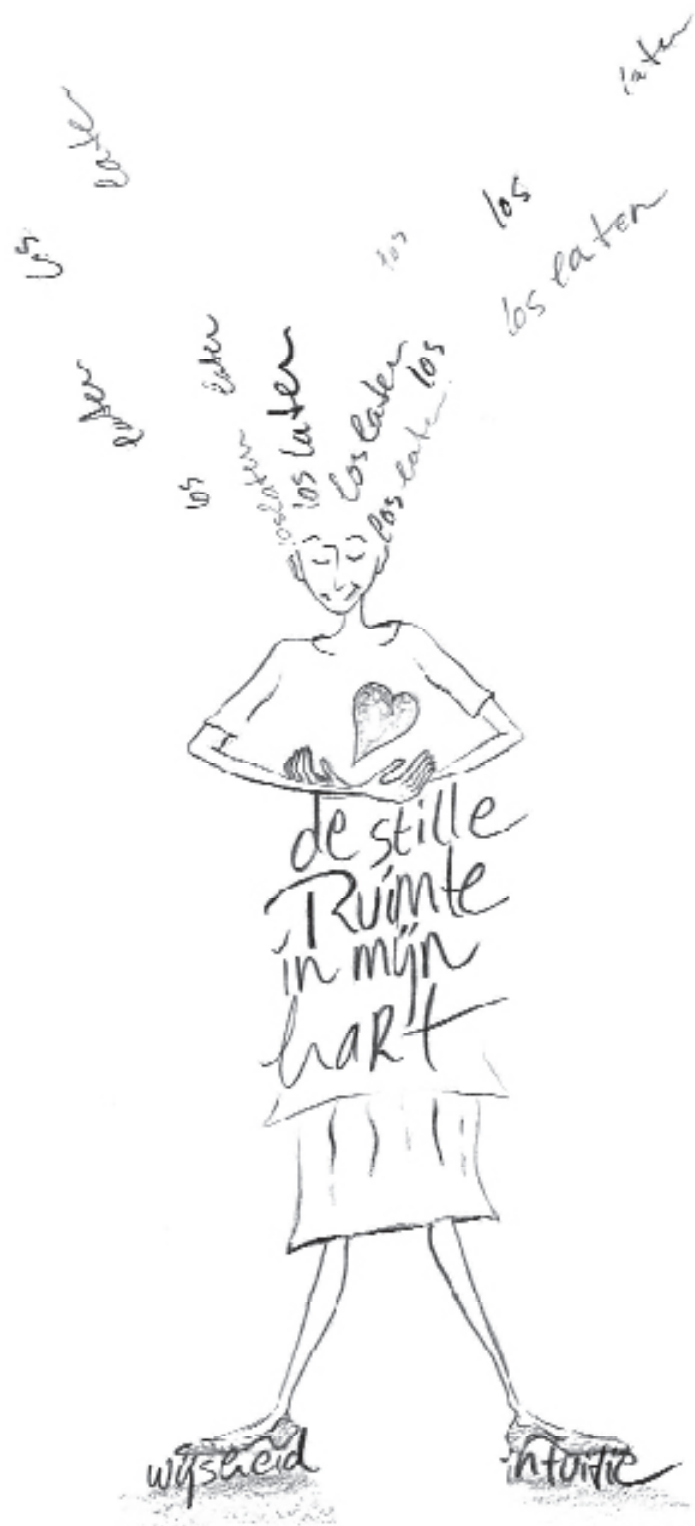 laten
los
laten
los
los
los laten
laten
laten
laten
los
los laten
los laten
los
los
loslaten
los laten
de stille
Ruimte
in mijn
haRt
wijsheid
intuitie